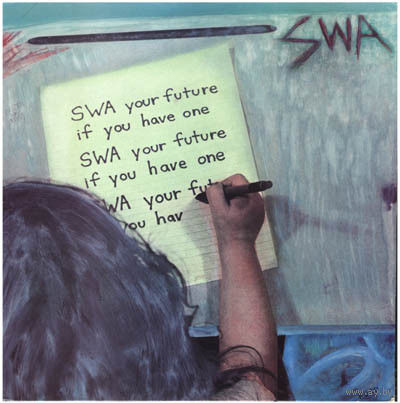 SWA
SWA your future
if you have one
SWA your future
if you have one
WA your fut
you hav
www.ay.by